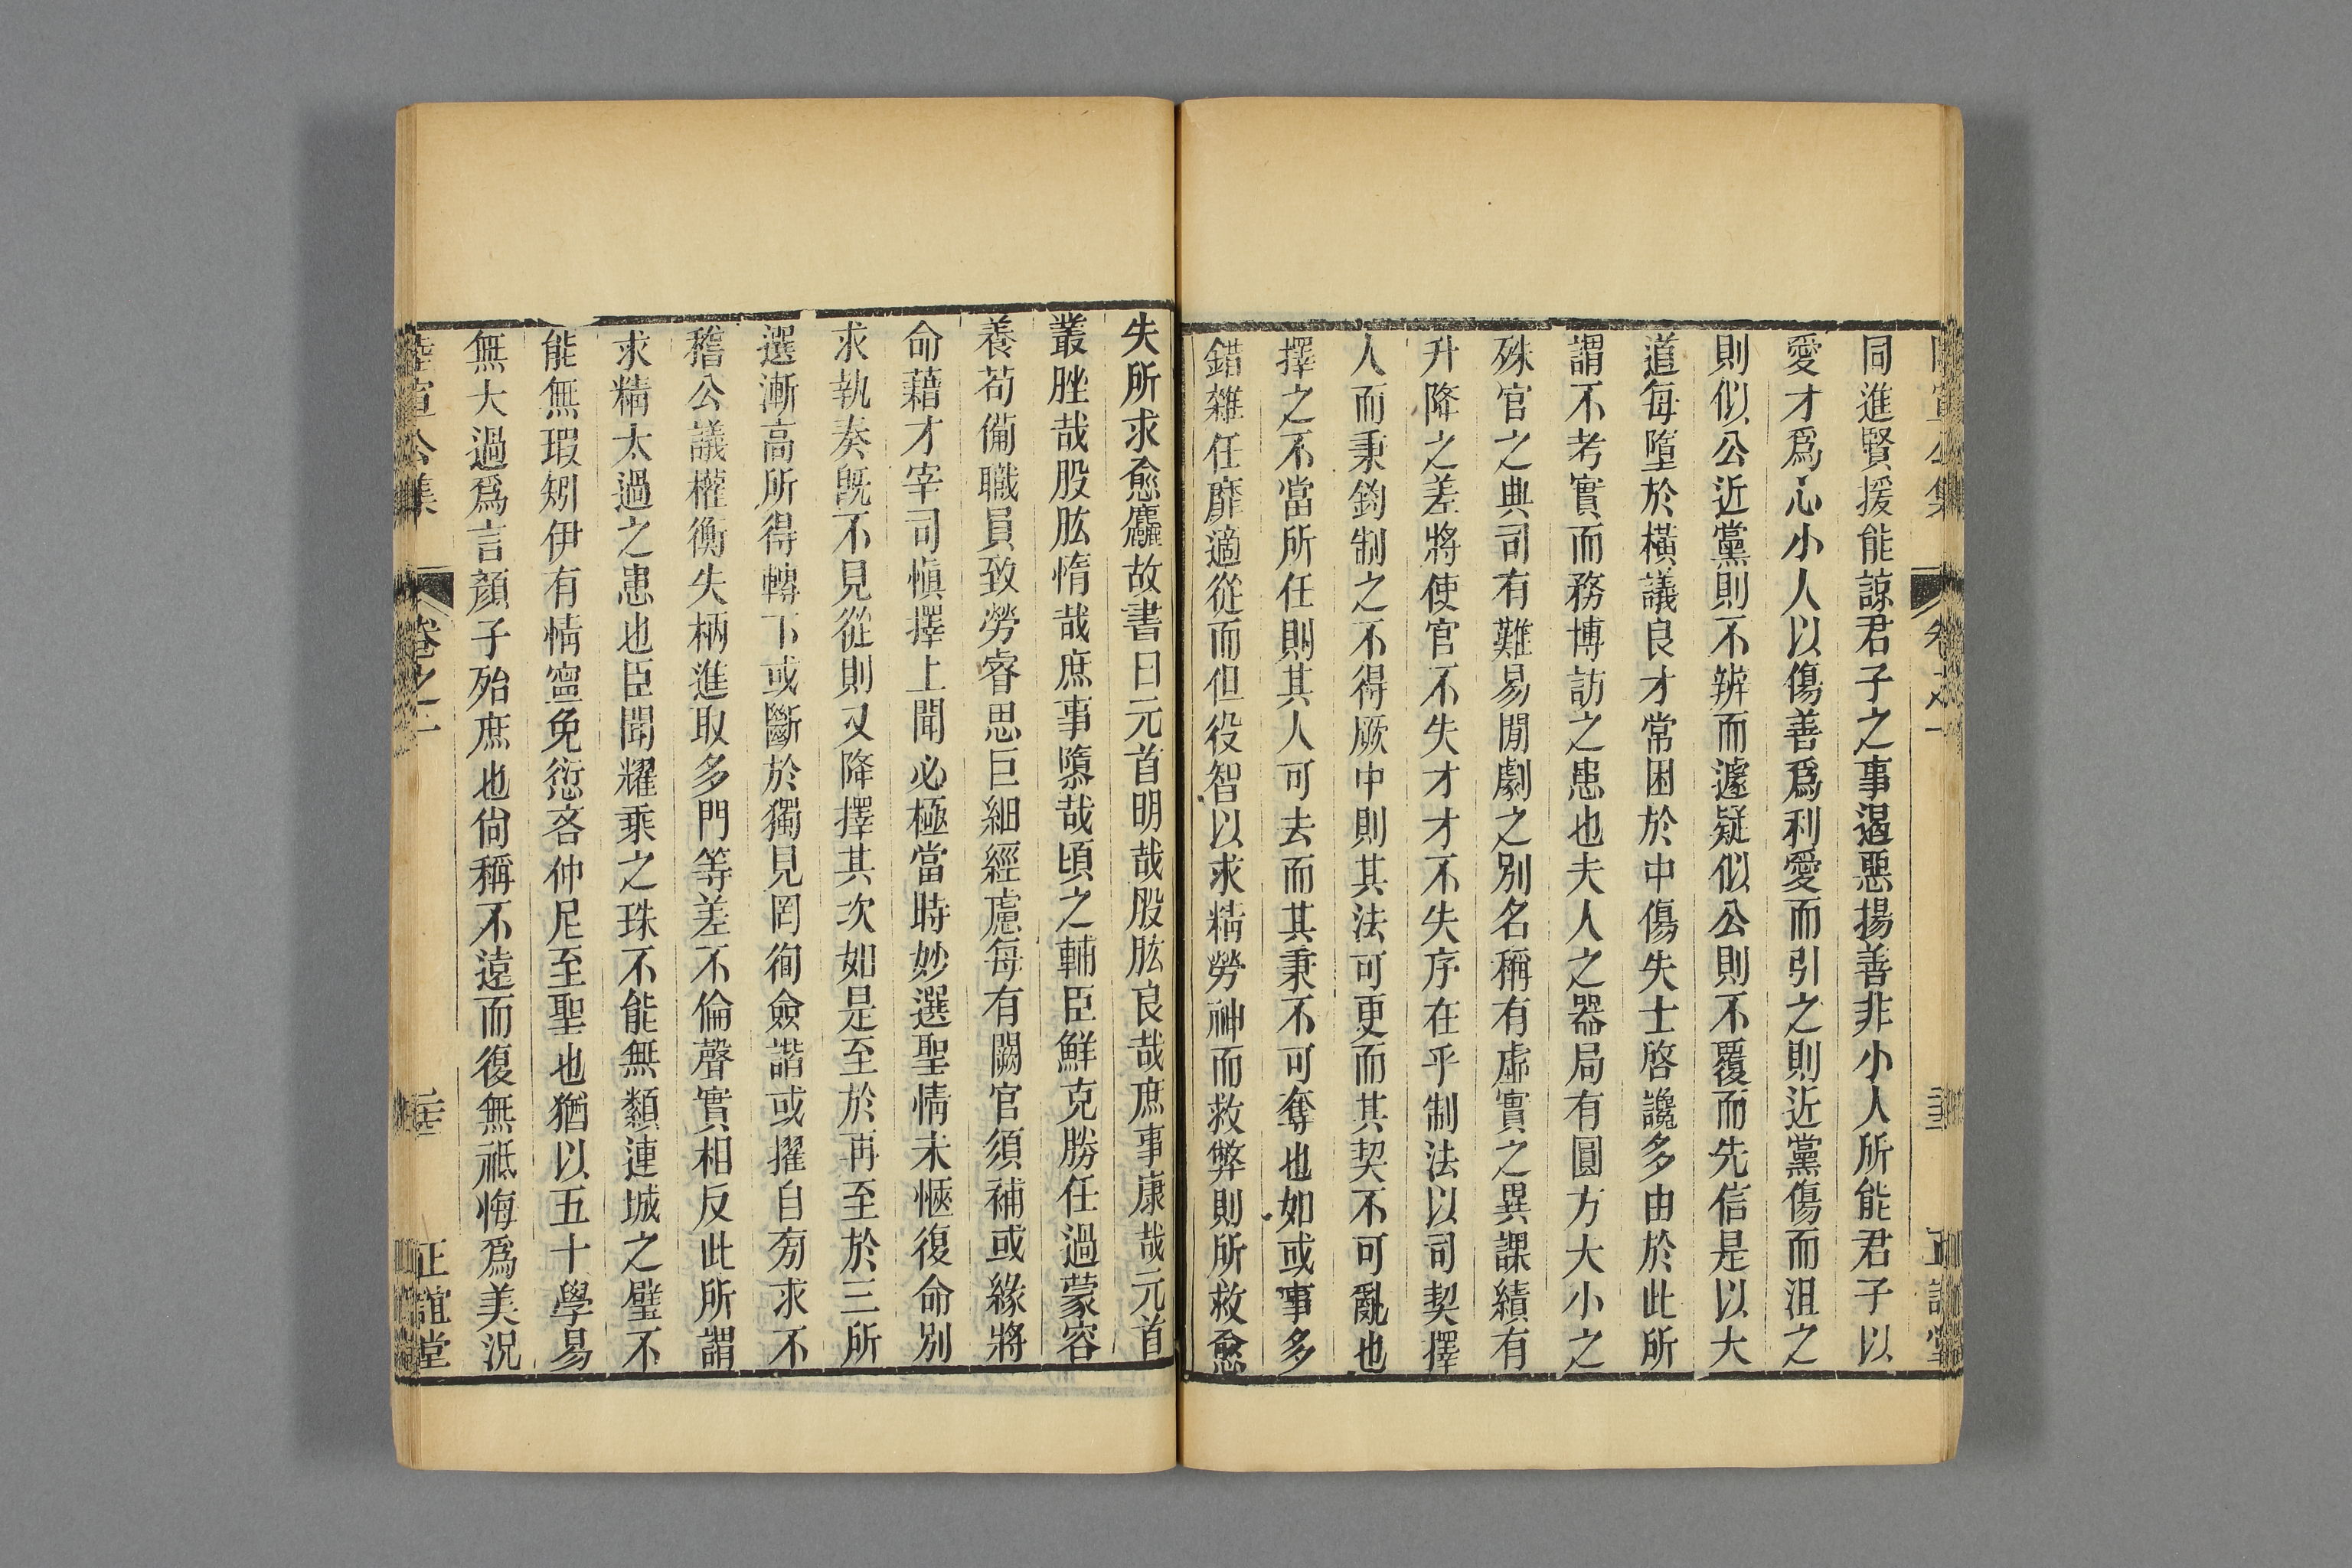 同進賢援能諒君子之事遏惡揚善非小人所能君子以
愛才爲心小人以傷善爲利愛而引之則近黨傷而沮之
則似公近黨則不辨而遽疑似公則不覆而先信是以大
道每墮於橫議良才常困於中傷失士啓讒多由於此所
謂不考實而務博訪之患也夫人之器局有圓方大小之
殊官之典司有難易閒劇之別名稱有虛實之異課績有
升降之差將使官不失才才不失序在乎制法以司契擇
人而秉鈞制之不得厥中則其法可更而其契不可亂也
擇之不當所任則其人可去而其秉不可奪也如或事多
錯雜任靡適從而但役智以求精勞神而救弊則所救愈
失所求愈麤故書曰元首明哉股肱良哉庶事康哉元首
叢脞哉股肱惰哉庶事隳哉頃之輔臣鮮克勝任過蒙容
養苟備職員致勞睿思巨細經慮每有闕官須補或緣將
命藉才宰司愼擇上聞必極當時妙選聖情未愜復命別
求執奏旣不見從則又降擇其次如是至於再至於三所
選漸高所得轉下或斷於獨見罔徇僉諧或擢自旁求不
稽公議權衡失柄進取多門等差不倫聲實相反此所謂
求精太過之患也臣聞耀乘之珠不能無纇連城之璧不
能無瑕矧伊有情寧免愆吝仲尼至聖也猶以五十學易
無大過爲言顏子殆庶也尙稱不遠而復無祗悔爲美況
陸宣公集 卷之一 正誼堂